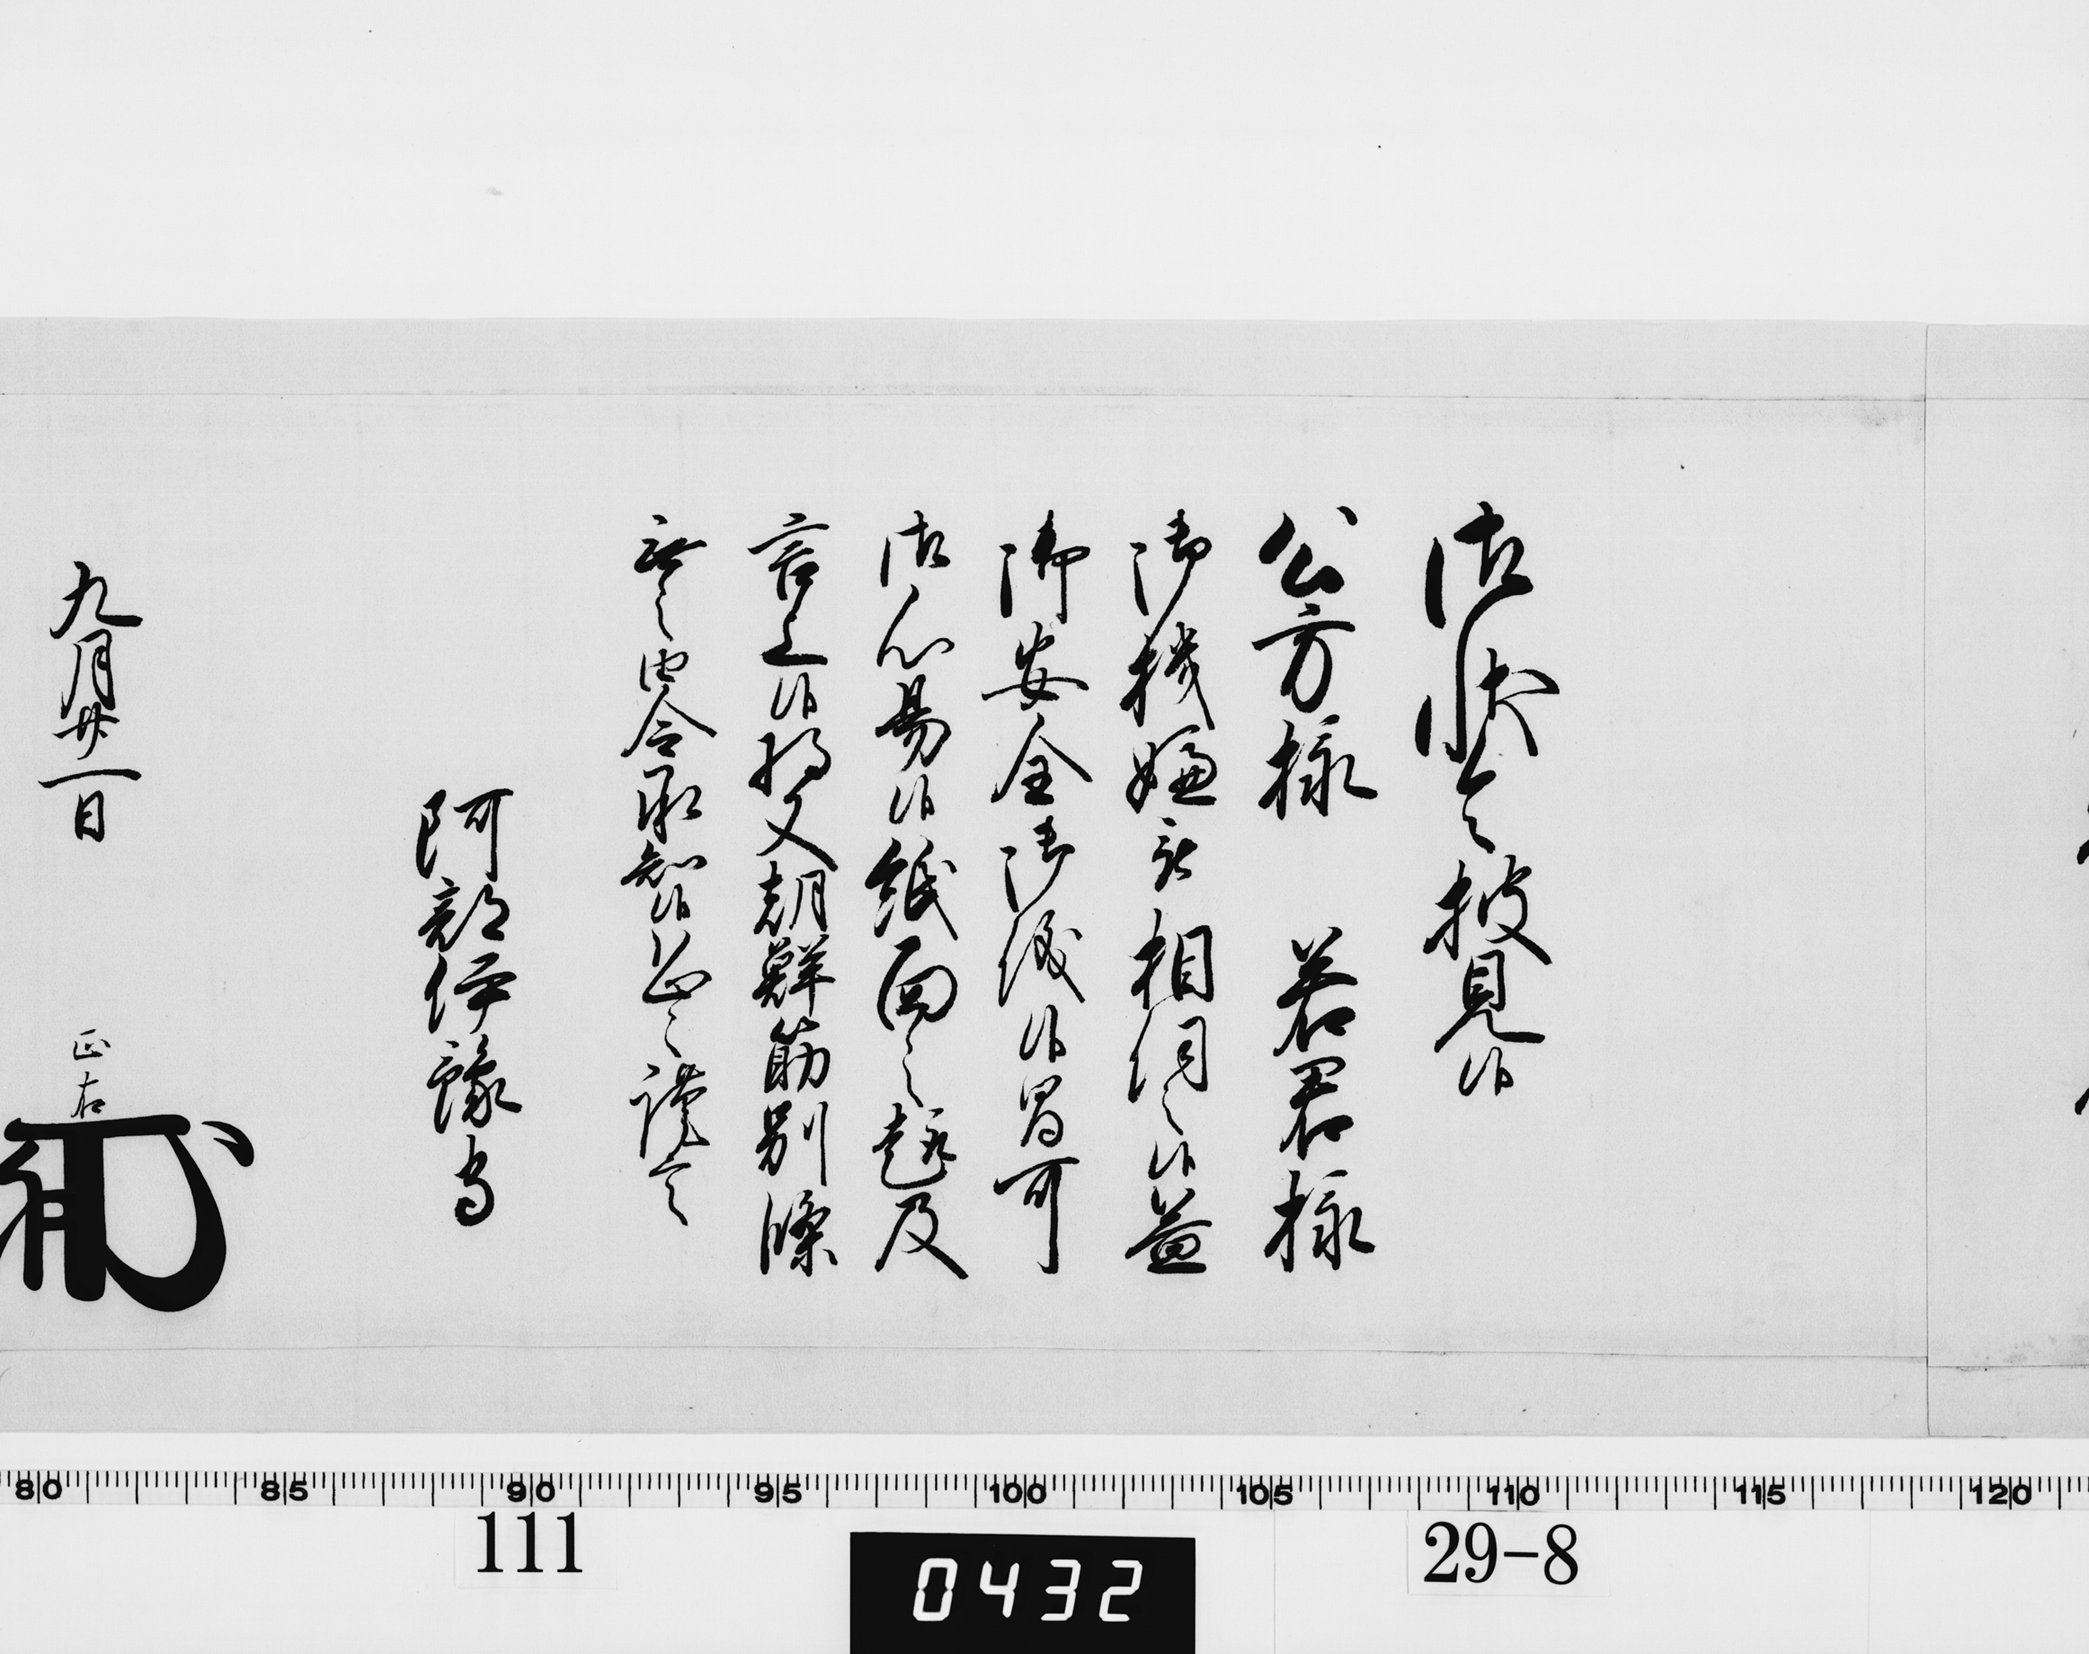 御状令披見候
公方様　若君様
御機嫌被相伺之候益
御安全御儀候間可
御心易候紙面之趣及
言上候将又朝鮮筋別條
無之由令承知候恐々謹言
阿部伊豫守
九月廿一日　正右
80 85 90 95 100 105 110 115 120
111
0432
29-8